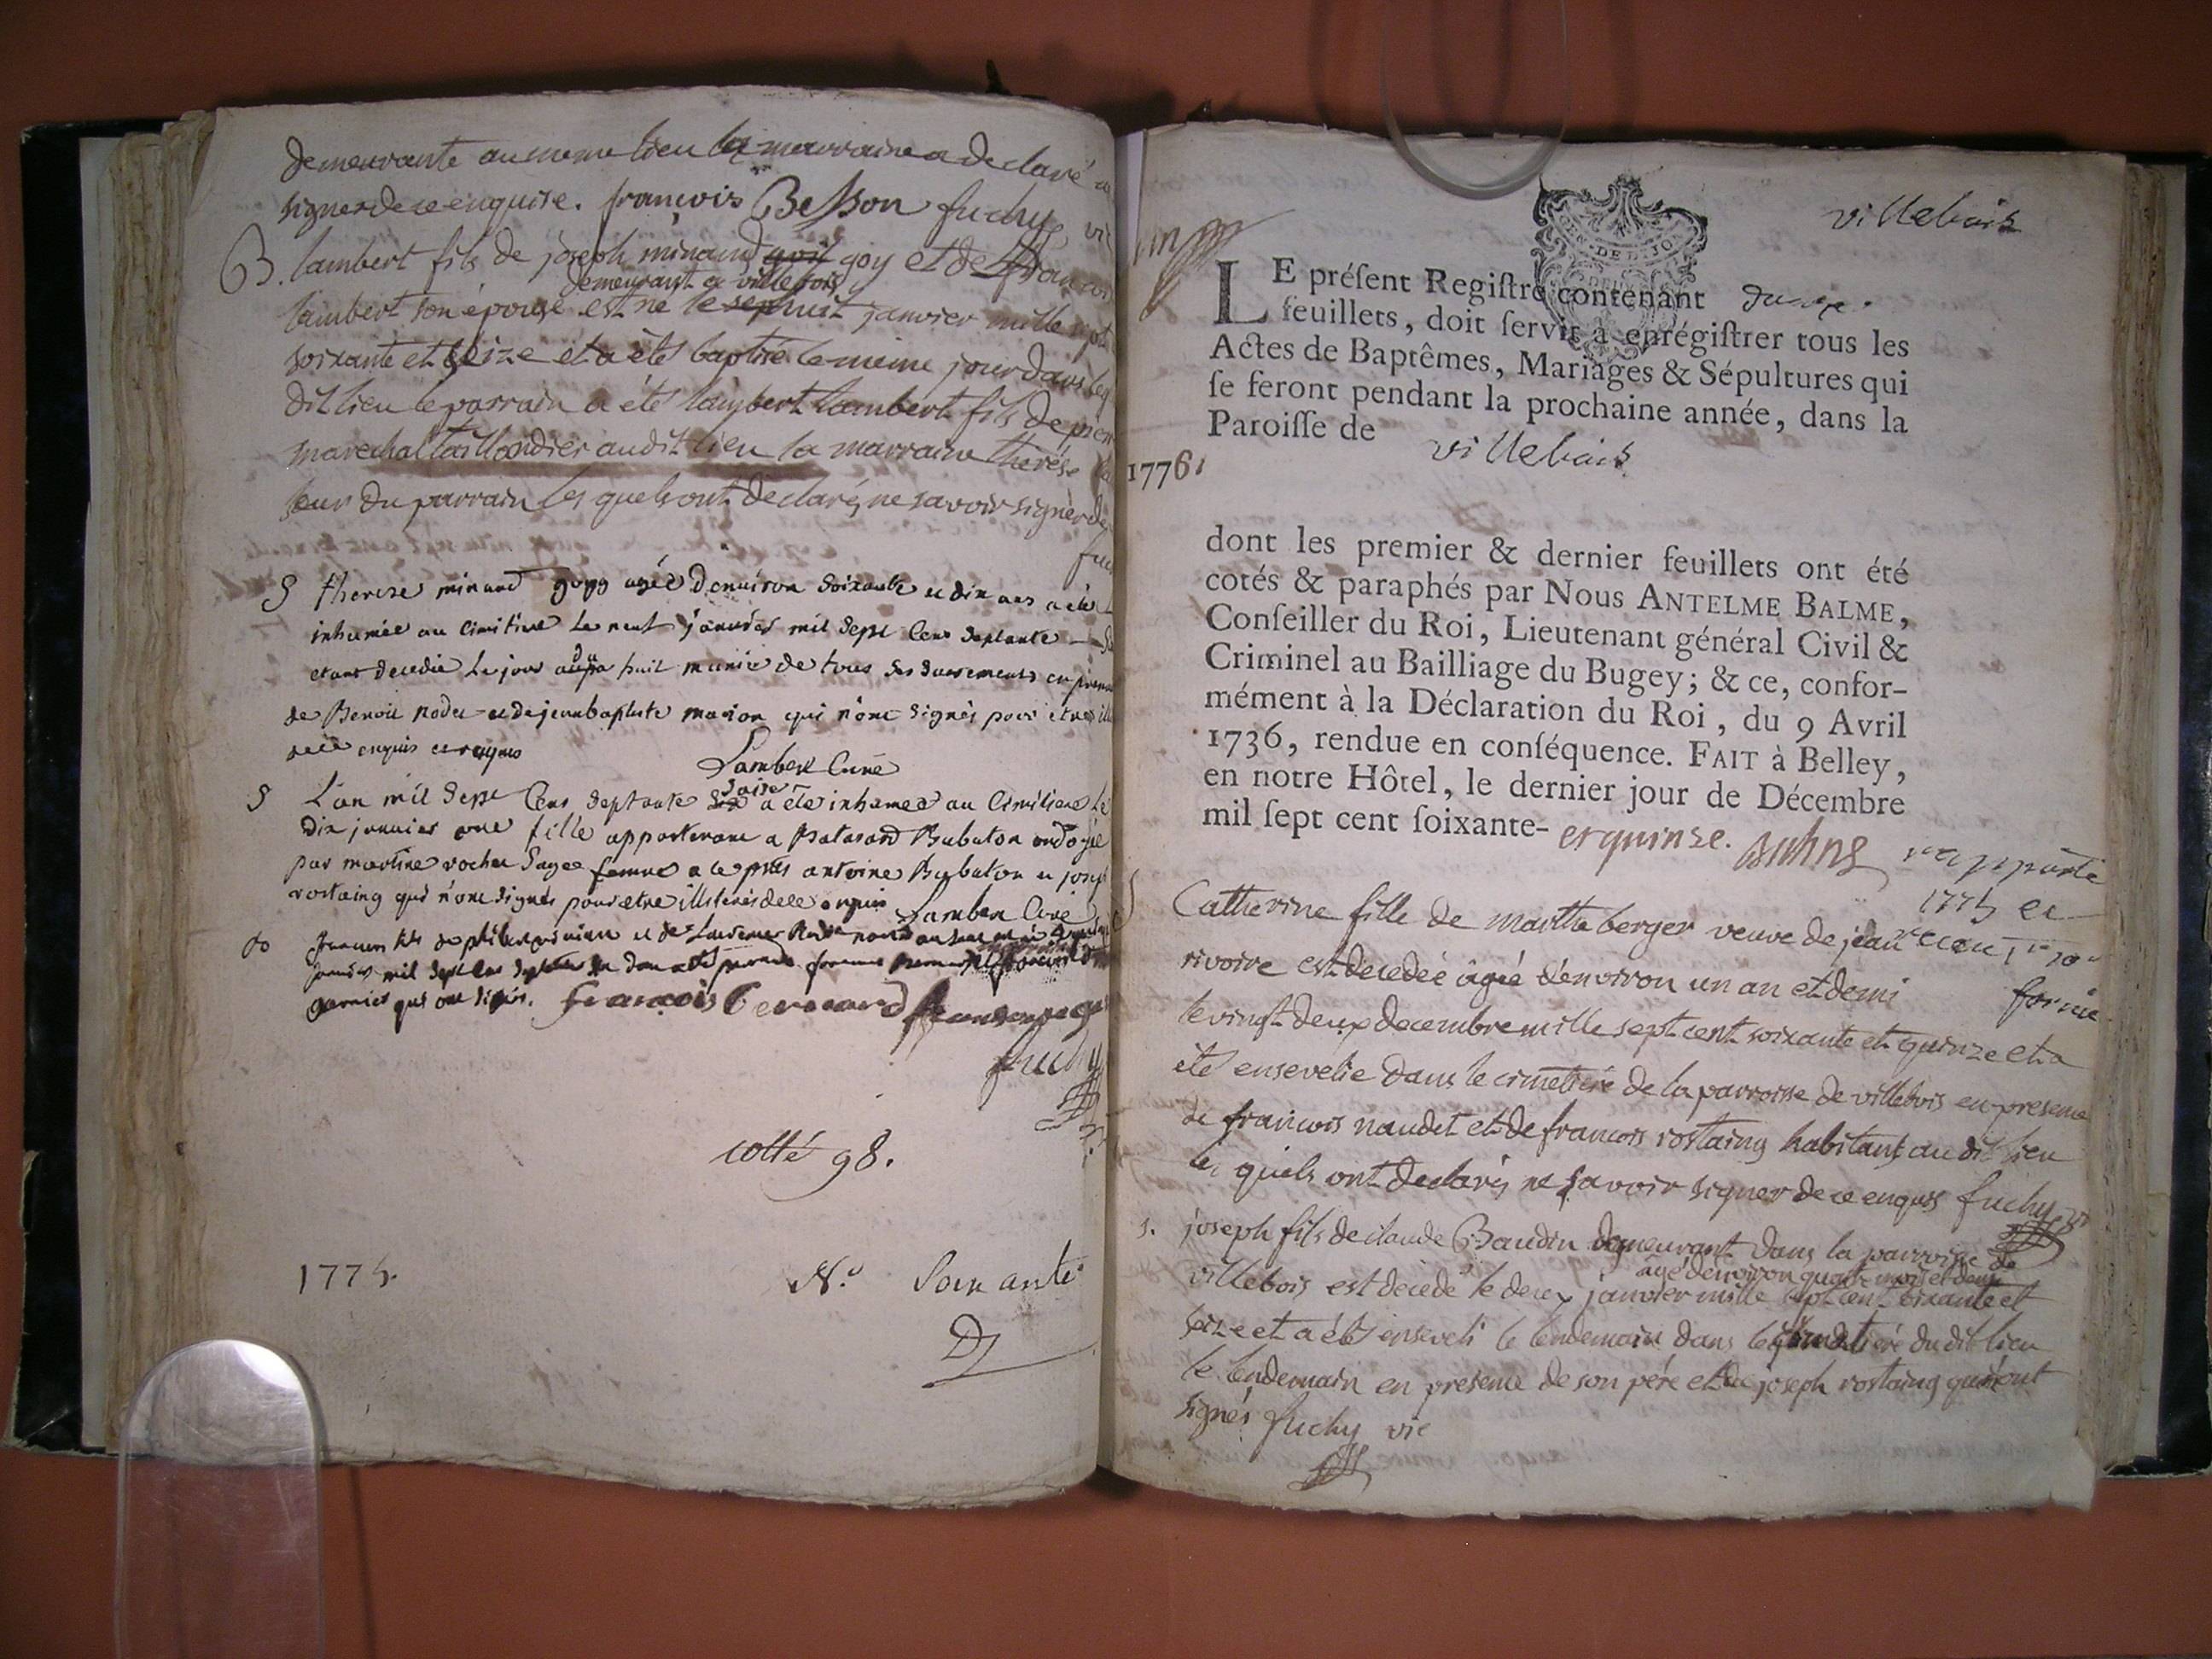 demeurante au meme lieu la marraine a declaré
signer de ce enquise. françois Besson fuchy vi
B. lambert fils de joseph minand goy et de
demeurant a villebois
lambert son épouse est né le huit janvier mille sept
soixante et seize et a été baptisé le meme jour dans
dit lieu le parrain a été lambert lambert fils de
marechal taillandier audit lieu la marraine therése
seur du parrain les quels ont declarés ne savoir signer de
S therese minand goy agée denviron soixante et dix ans a été
inhumée au cimitiere le neuf janvier mil sept cens septante
etant decedée le jour du huit munie de tous ses sacrements en
de Benoit nodet et de jeanbaptiste marion qui n'ont signés pour etre
de ce enquis et requis
Lambert Curé
S L'an mil sept cens septante saise a été inhumée au cimitiere le
dix janvier une fille appartenant a Balasard Bubaton
par martine rochet sage femme a ce prts antoine Bubaton et
rostaing qui n'ont signés pour etre illiterés de ce enquis
Lambert Curé
janvier mil sept cens
garnier qui ont signés. françois bernard
fuchy
cotté 98.
1775.
N.o Soixante
villebois
LE préſent Regiſtre contenant
feuillets, doit ſervir à enrégiſtrer tous les
Actes de Baptêmes, Mariages & Sépultures qui
ſe feront pendant la prochaine année, dans la
Paroiſſe de villebois
1776
dont les premier & dernier feuillets ont été
cotés & paraphés par Nous ANTELME BALME,
Conſeiller du Roi, Lieutenant général Civil &
Criminel au Bailliage du Bugey; & ce, confor-
mément à la Déclaration du Roi, du 9 Avril
1736, rendue en conſéquence. FAIT à Belley,
en notre Hôtel, le dernier jour de Décembre
mil ſept cent ſoixante- et quinze.
1775
Catherine fille de marthe berger veuve de jean
rivoire est decedée agée d'environ un an et demi
le vingt deux decembre mille sept cent soixante et quinze et a
été ensevelie dans le cimetiere de la parroisse de villebois en presence
de francois naudet et de francois rostaing habitans au dit lieu
les quels ont declarés ne savoir signer de ce enquis fuchy
s. joseph fils de claude Baudin demeurant dans la parroisse de
agé denviron quatre mois et demi
villebois est decedé le deux janvier mille sept cent soixante et
seize et a été enseveli le lendemain dans le cimetiere du dit lieu
le lendemain en presence de son pére et de joseph rostaing qui n'ont
signés fuchy vic